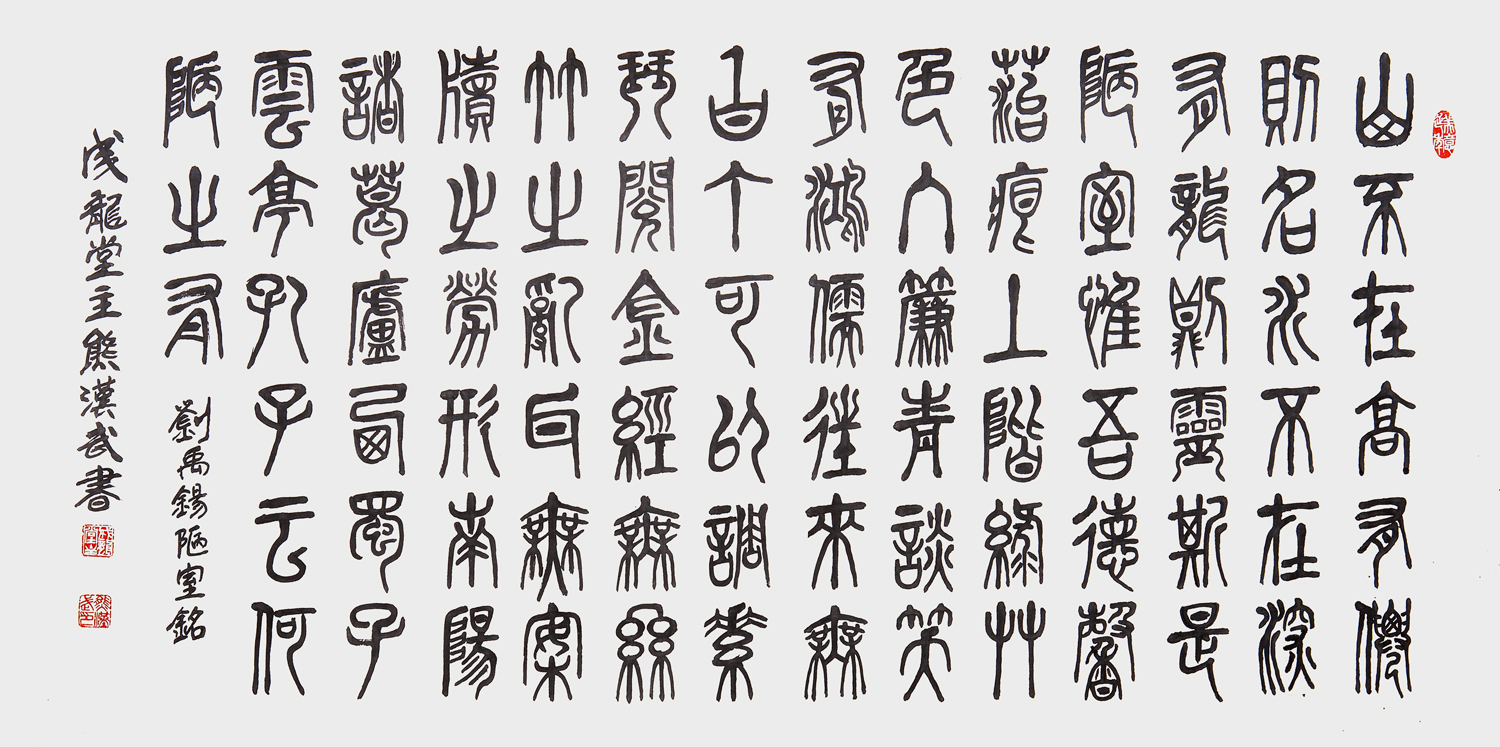 山不在高有僊
則名水不在深
有龍則靈斯是
陋室惟吾德馨
菭痕上階綠艸
色入簾青談笑
有鴻儒往來無
白丁可以調素
琴閱金經無絲
竹之亂耳無案
牘之勞形南陽
諸葛廬西蜀子
雲亭孔子云何
陋之有
劉禹錫陋室銘
成龍堂主熊漢武書